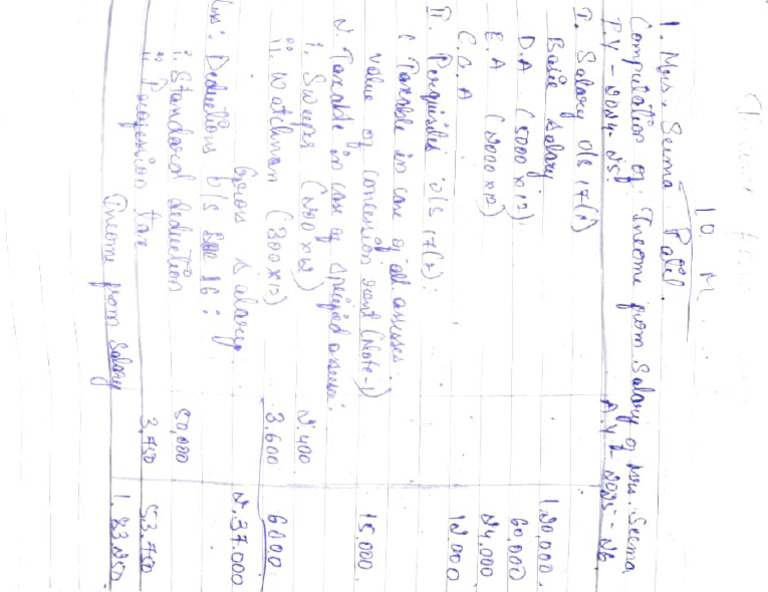 10 M
1. Mrs. Seema Patel.
Computation of Income from Salary of Mrs. Seema
P.Y - 2024-25 A.Y - 2025-26
I. Salary U/s 17(1)
Basic Salary 1,20,000
D.A (5000 x 12) 60,000
E.A (2000 x 12) 24,000
C.C.A 12,000
II. Perquisites U/s 17(2):
i Taxable in case of all assesses.
value of concession rent (Note-1) 15,000
2. Taxable in case of specified assesse:
i. Sweeper (200 x 12) 2,400
ii. Watchman (300 x 12) 3,600 6000
Gross salary. 2,37,000
Less: Deductions U/s 16:
i. Standard deduction 50,000
ii Profession tax 3,750 53,750
Income from Salary 1,83,250